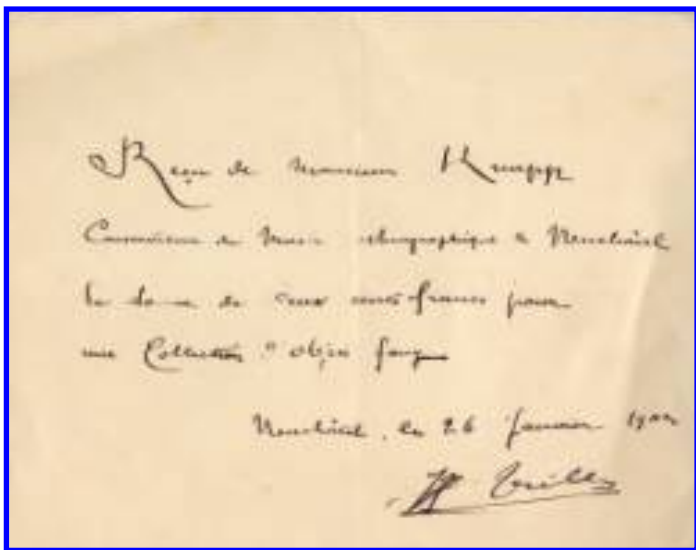 Reçu de Monsieur Knapp
Conservateur du Musée ethnographique à Neuchâtel
la somme de cents francs pour
une Collection d'objets
Neuchâtel, le 26 Janvier